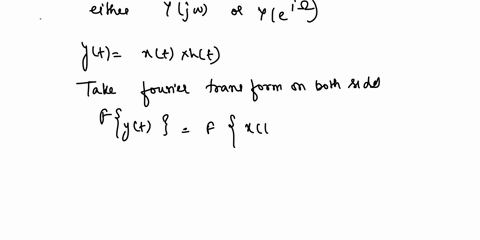 either Y(jω) or Y(e^{jΩ})
y(t) = x(t) * h(t)
Take fourier transform on both sides
F{y(t)} = F{x(